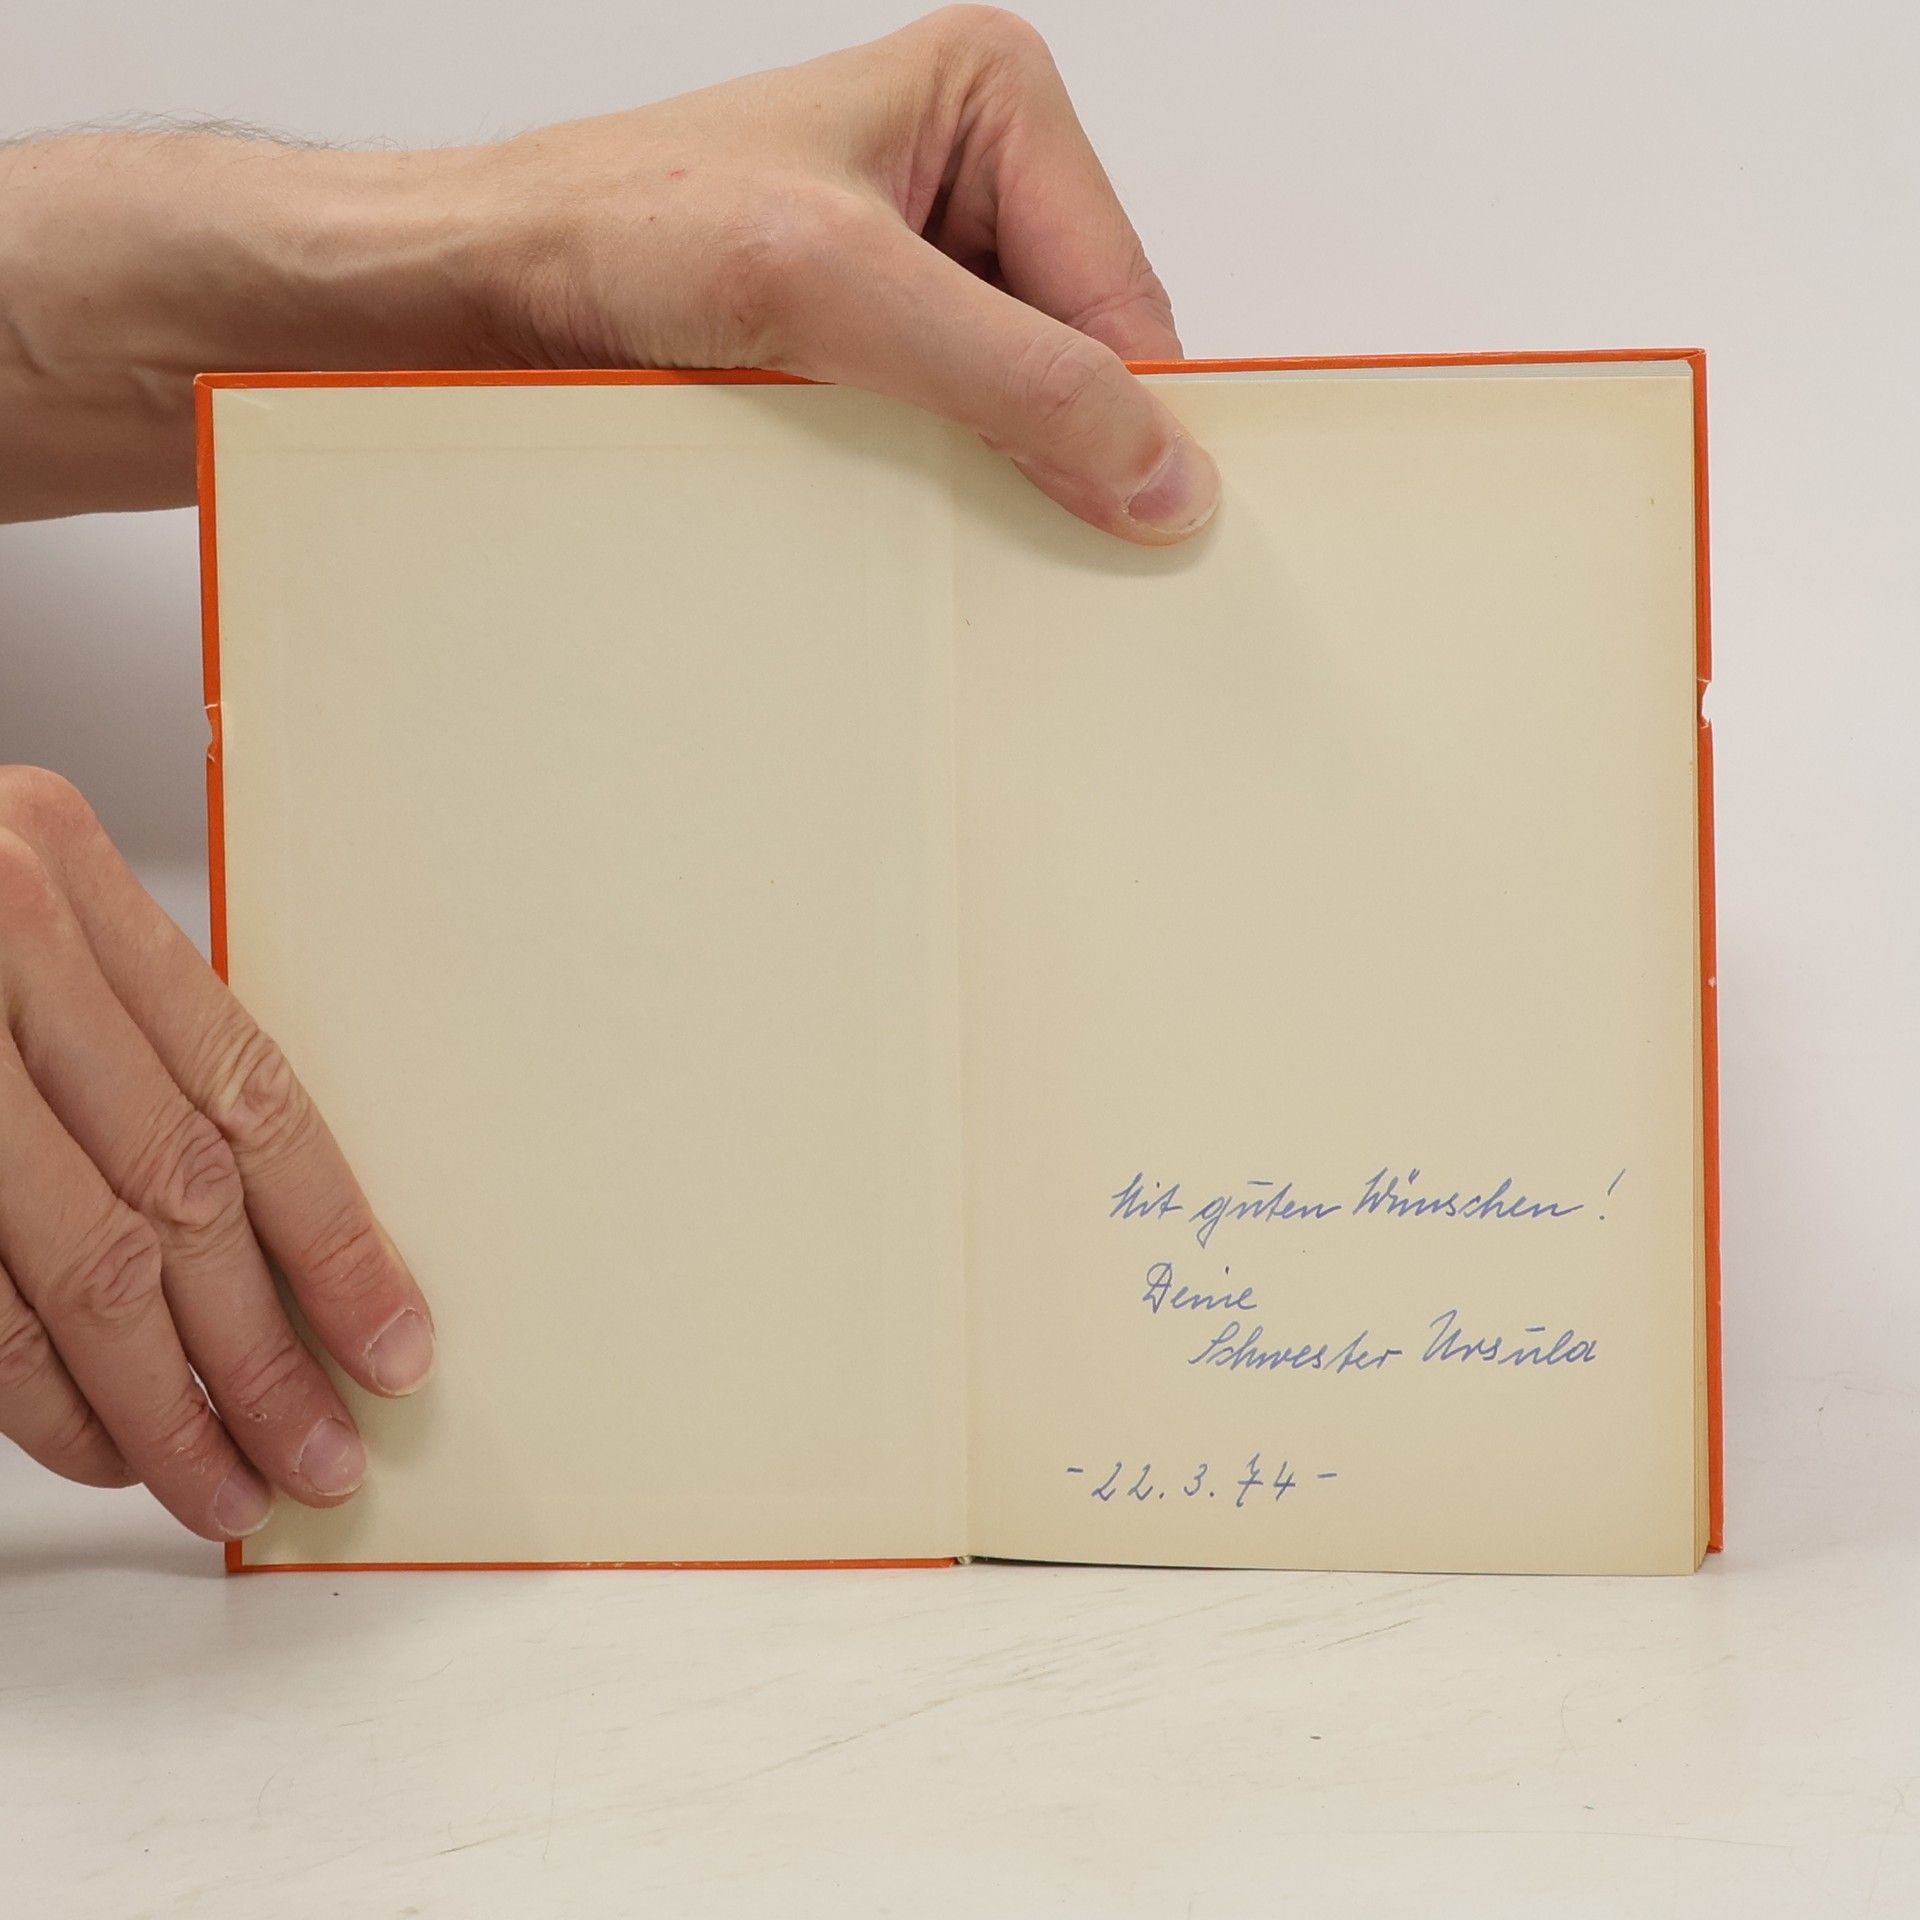 Mit guten Wünschen!
Deine
Schwester Ursula
- 22. 3. 74 -